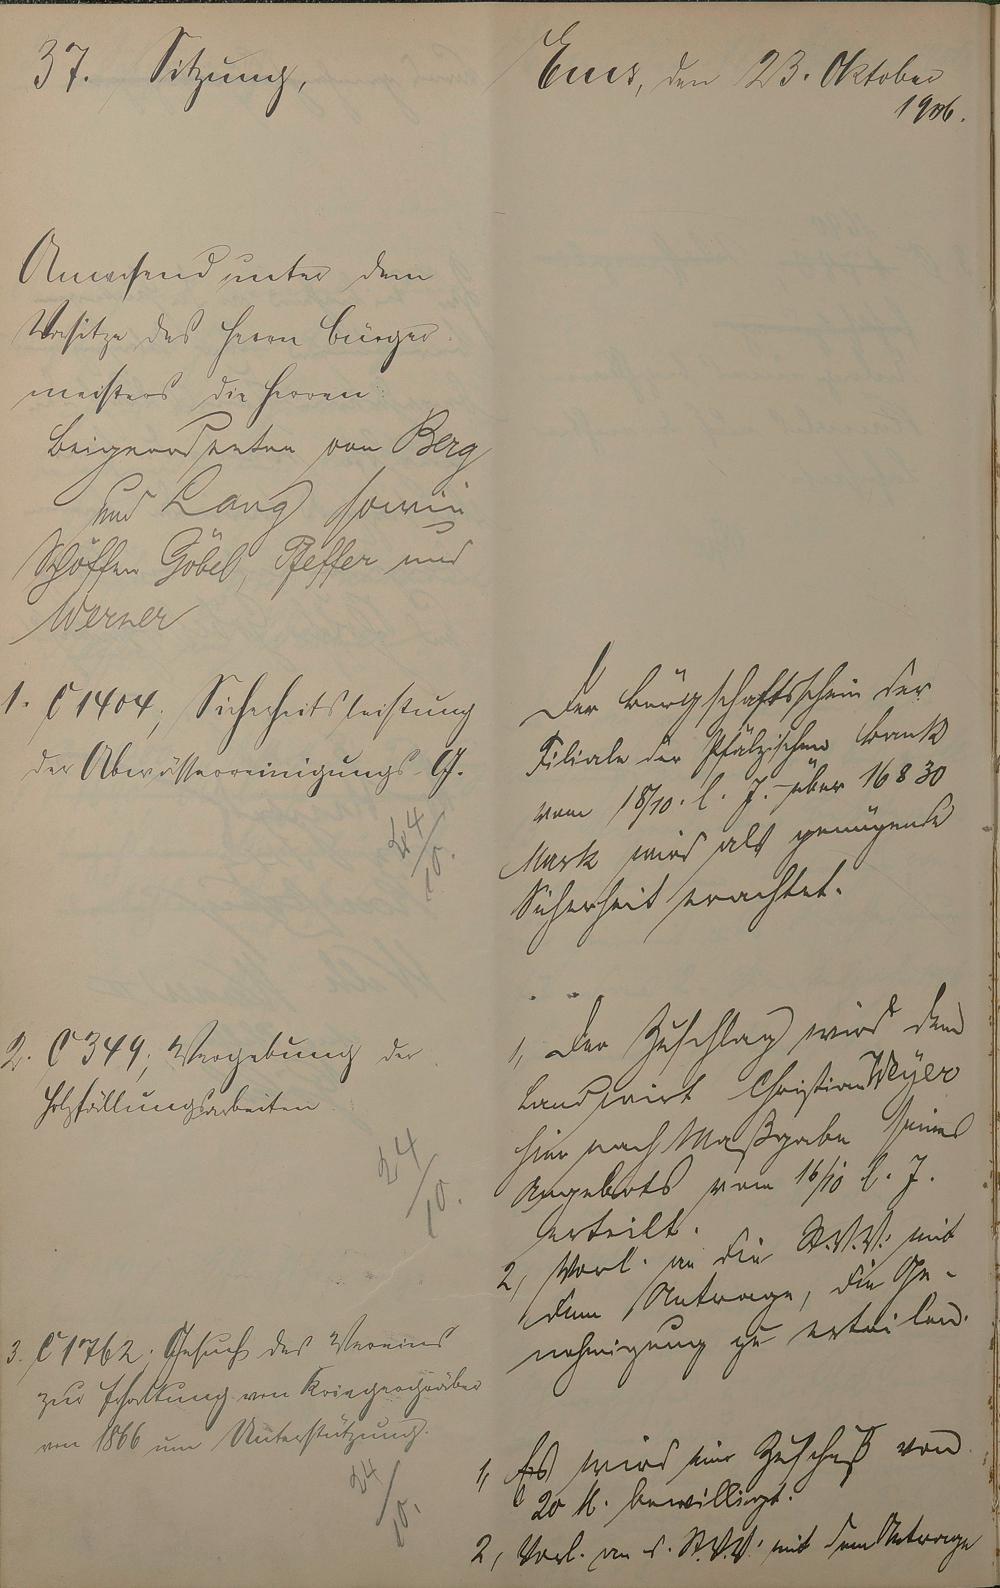 37. Sitzung,
Ems, den 23. Oktober
1906.
Anwesend unter dem
Vorsitze des Herrn Bürger-
meisters die Herren:
Beigeordneten von Berg
und Lang sowie
Schöffen Göbel, Pfeffer und
Werner
1. C 1404, Sicherheitsleistung
der Abwässerreinigungs-G.
24/10.
Der Bürgschaftsschein der
Filiale der Pfälzischen Bank
vom 18/10. l. J. über 16830
Mark wird als genügende
Sicherheit erachtet.
2. C 349, Vergebung der
Holzfällungsarbeiten
24/10.
1, Der Zuschlag wird dem
Landwirt Christian Weyer
hier nach Maßgabe seines
Angebots vom 16/10 l. J.
erteilt.
2, Vorl. an die St.V.V. mit
dem Antrage, die Ge-
nehmigung zu erteilen.
3. C 1762. Gesuch des Vereins
zur Erhaltung von Kriegergräber
von 1866 um Unterstützung.
24/10.
1, Es wird ein Zuschuß von
20 M. bewilligt.
2, Vorl. an d. St.V.V. mit dem Antrage